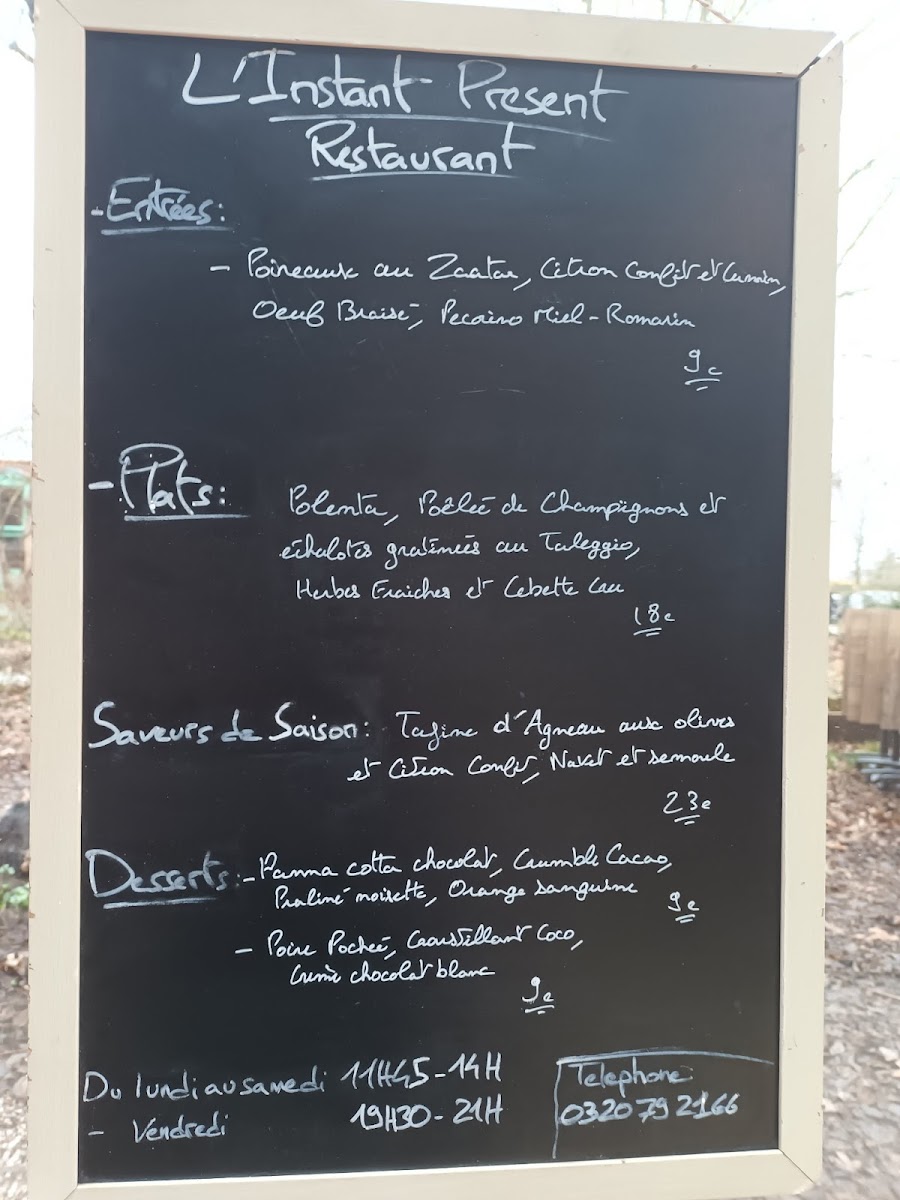 L'Instant Present
Restaurant
- Entrées:
- Poireaux au Zaatar, Citron Confit et Cumin,
Oeuf Braisé, Pecorino Miel - Romarin
9€
- Plats: Polenta, Poêlée de Champignons et
échalotes gratinées au Taleggio,
Herbes Fraiches et Cebette Crue
18€
Saveurs de Saison: Tagine d'Agneau aux olives
et Citron Confit, Navet et semoule
23€
Desserts: - Panna cotta chocolat, Crumble Cacao,
Praliné noisette, Orange sanguine
9€
- Poire Pochée, Croustillant Coco,
Crème chocolat blanc
9€
Du lundi au samedi 11H45 - 14H
- Vendredi 19H30 - 21H
Telephone
03 20 79 21 66